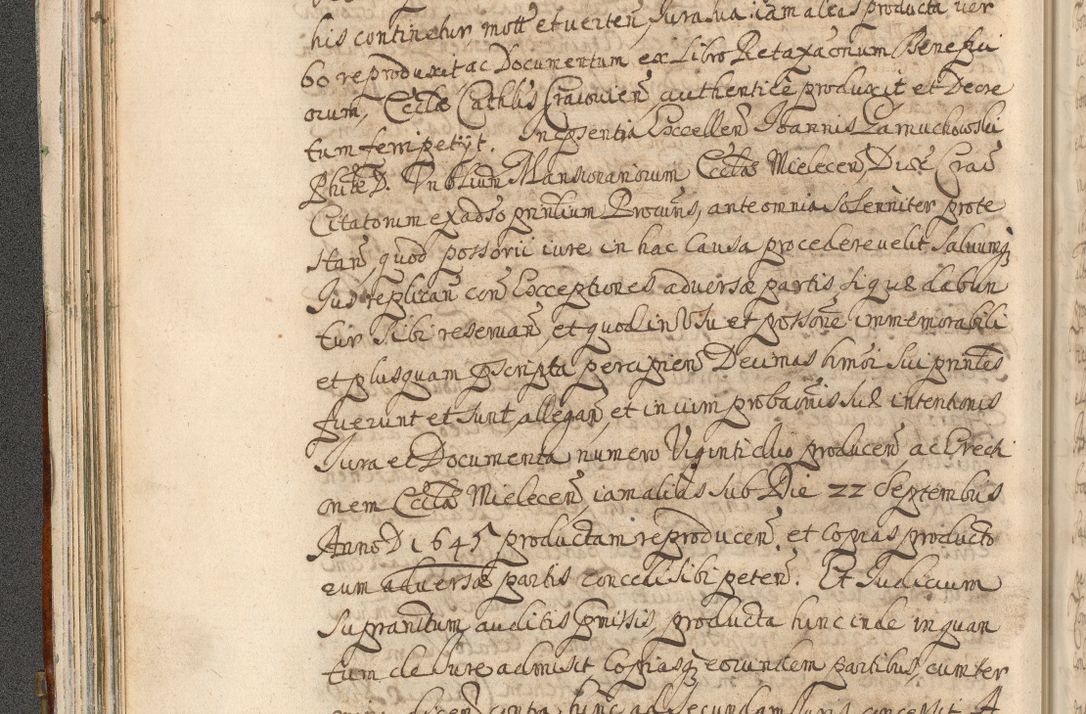 his continetur mott et uerten, Jura sua iam alias producta uer
bo reproduxit ac Documentum ex Libro Retaxaonum Benefici
orum, Eccłæ Cathlis Cracovien, authentice produxit et Decre
tum ferri petijt. In pñsentia Excellen Joannis Zarnuchowski
Phiłæ D. Vnblium Mansionariorum Eccłæ Mielecen, Diœ Crac
Citatorum ex adso pnntium Procuris, ante omnia solenniter prote
stan, quod possorii iure in hac Causa procedere uelit, saluumq
Jus replican con Exceptiones aduersæ partis si quæ dabun
tur sibi reseruan, et quod in Vsu et possone immemorabili
et plusquam pscripta percipien Decimas hmoi sui printes
fuerunt et sunt allegan, et in uim probaonis suæ intentionis
Jura et Documenta numero Viginti duo producen ac Erecti
onem Eccłæ Mielecen, iam alias sub Die 22 Septembris
Anno D 1645 productam reproducen, et copias producto
rum aduersæ partis concedi sibi peten. Et Judicium
supranitum, auditis pmissis, producta hinc inde in quan
tum de iure admisit Copiasq eorundem partibus, cum ter
contra hinc ad secundam Juris concessit. A